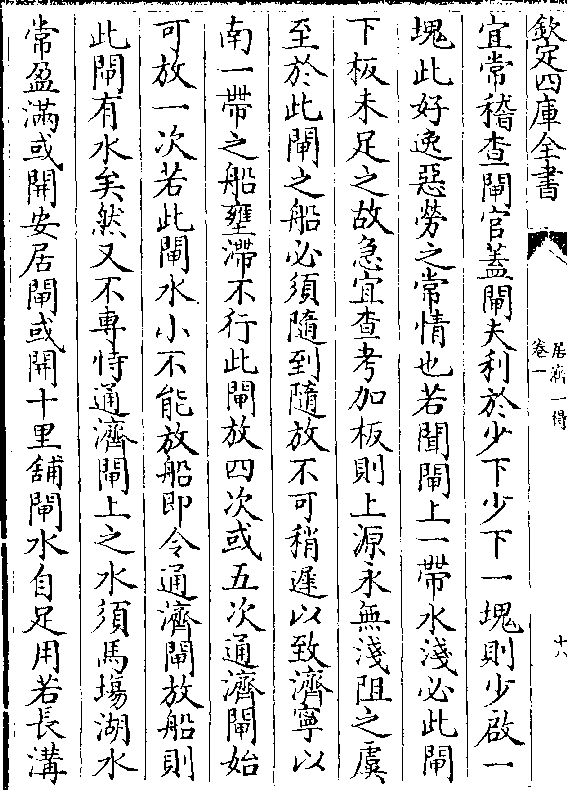 欽定四庫全書
居濟一得
卷一
十六
宜常稽查閘官蓋閘夫利於少下少下一塊則少啟一
塊此好逸惡勞之常情也若聞閘上一帶水淺必此閘
下板未足之故急宜查考加板則上源永無淺阻之虞
至於此閘之船必須隨到隨放不可稍遲以致濟寧以
南一帶之船壅滯不行此閘放四次或五次通濟閘始
可放一次若此閘水小不能放船即令通濟閘放船則
此閘有水矣然又不專恃通濟閘上之水須馬塲湖水
常盈滿或開安居閘或開十里舖閘水自足用若長溝